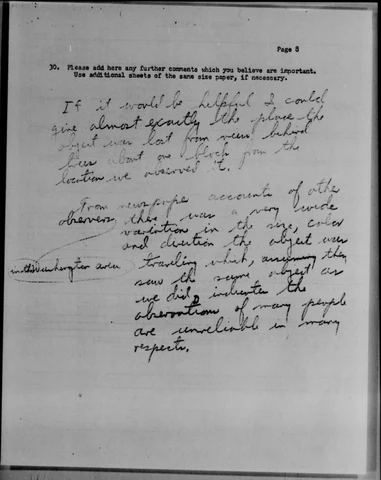 Page 8
30. Please add here any further comments which you believe are important.
Use additional sheets of the same size paper, if necessary.
If it would be helpful I could
give almost exactly the place the
object was lost from view behind
trees about one block from the
location we observed it.
From newspaper accounts of other
observers there was a very wide
variation in the size, color
and direction the object was
in this area
traveling which, assuming they
saw the same object as
we did, indicates the
observations of many people
are unreliable in many
respects.